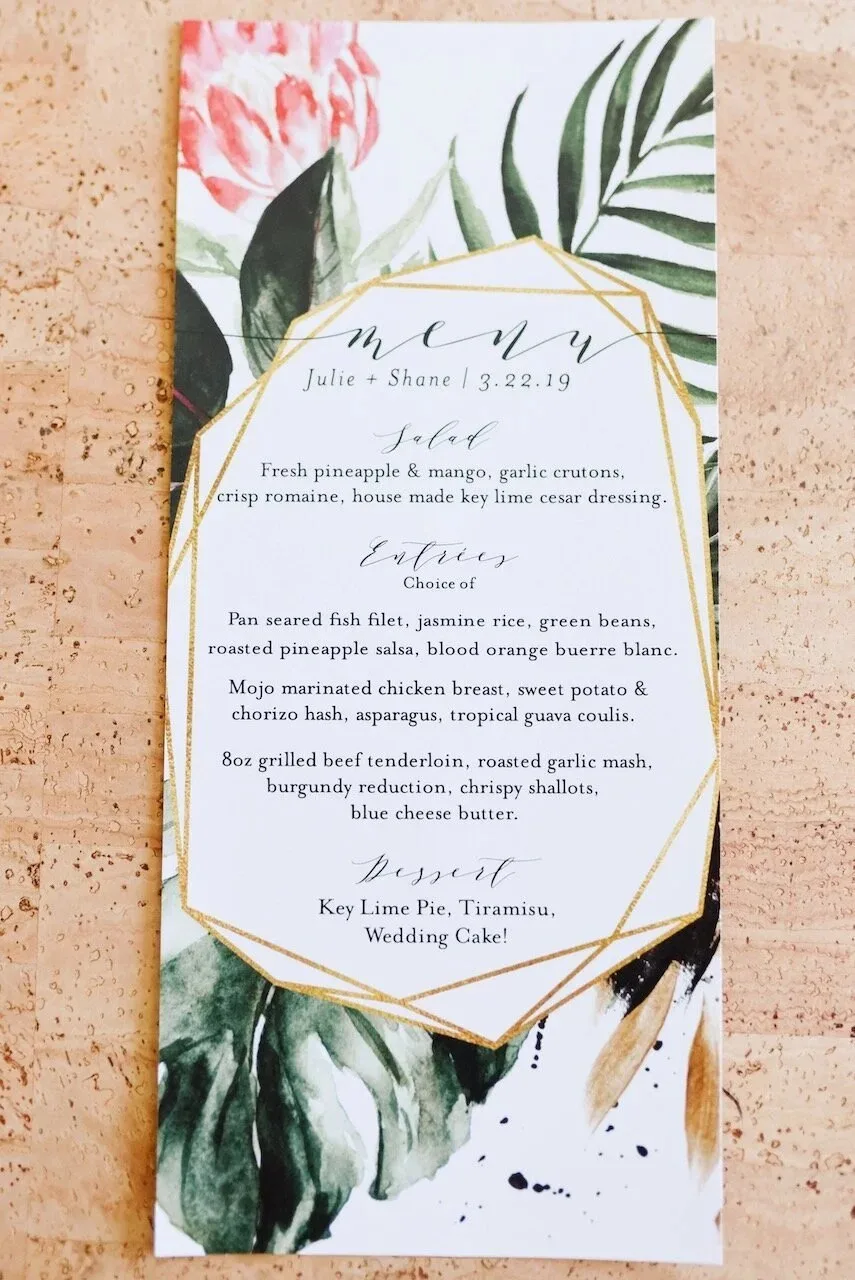 menu
Julie + Shane | 3.22.19
Salad
Fresh pineapple & mango, garlic crutons,
crisp romaine, house made key lime cesar dressing.
Entrées
Choice of
Pan seared fish filet, jasmine rice, green beans,
roasted pineapple salsa, blood orange buerre blanc.
Mojo marinated chicken breast, sweet potato &
chorizo hash, asparagus, tropical guava coulis.
8oz grilled beef tenderloin, roasted garlic mash,
burgundy reduction, chrispy shallots,
blue cheese butter.
Dessert
Key Lime Pie, Tiramisu,
Wedding Cake!